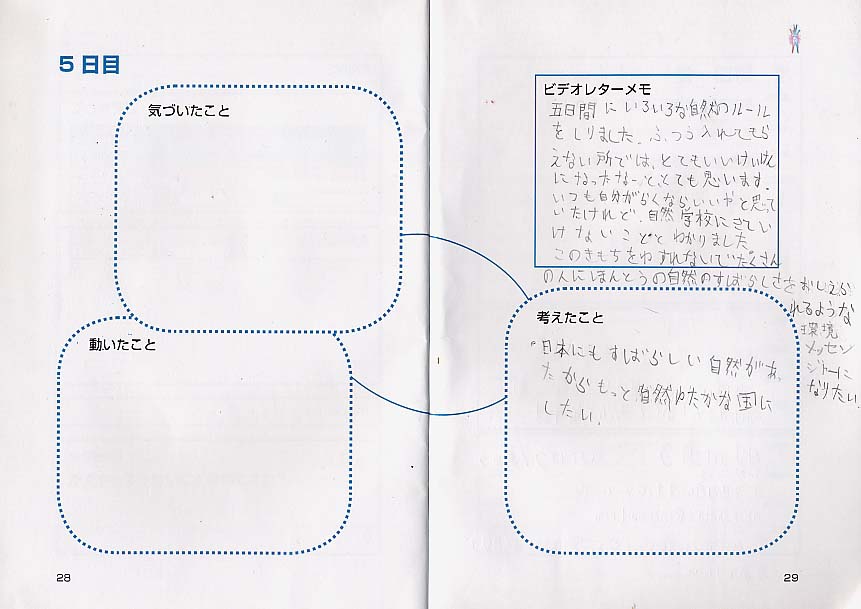 5日目
気づいたこと
動いたこと
28
ビデオレターメモ
五日間にいろいろな自然のルール
をしりました。ふつう入れてもら
えない所では、とてもいいけいけん
になったなーと、とても思います。
いつも自分がらくならいいやと思って
いたけれど、自然学校にきてい
けないこととわかりました
このきもちをわすれないでたくさん
の人にほんとうの自然のすばらしさをおしえら
れるような
環境
メッセン
ジャーに
なりたい。
考えたこと
・日本にもすばらしい自然があっ
たからもっと自然ゆたかな国に
したい。
29